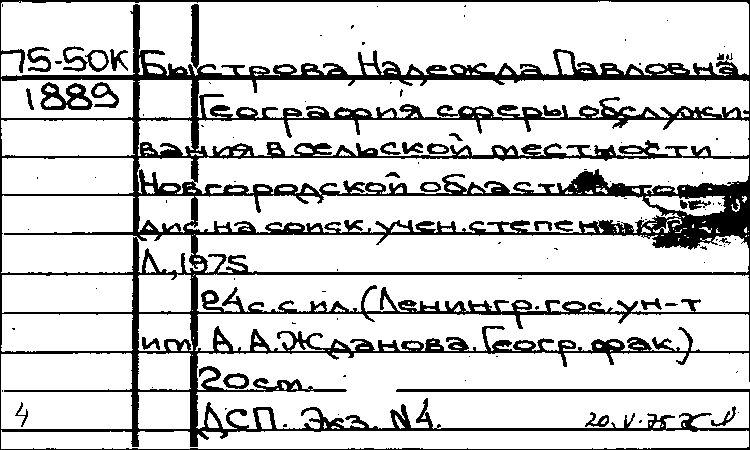 75-50К Быстрова, Надежда Павловна.
1889 География сферы обслужи-
вания в сельской местности
Новгородской области.
дис. на соиск. учен. степени
Л., 1975.
24 с. с ил. (Ленингр. гос. ун-т
им. А. А. Жданова. Геогр. фак.)
20 см.
4 ДСП. Экз. N4. 20.V.75